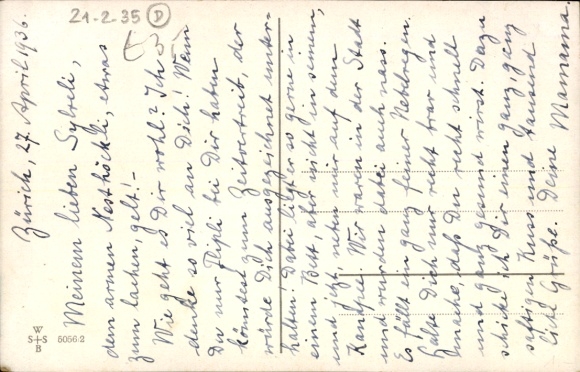 21-2-35 D
Zürich, 27. April 1936.
Meinem lieben Sylveli,
dem armen Nesthöckli, etwas
zum lachen, gelt! -
Wie geht es Dir wohl? Ich
denke so viel an Dich! Wenn
Du nur Flipli bei Dir haben
könntest zum Zeitvertreib, der
würde Dich ausgezeichnet unter-
halten! Dabei liegt er so gerne in
einem Bett, aber nicht in seinem,
und jetzt neben mir auf dem
Kanapee. Wir waren in der Stadt
und wurden dabei auch nass.
Es fällt ein ganz feiner Nebelregen.
Halte Dich nur recht brav und
mache, dass Du recht schnell
und ganz gesund wirst. Dazu
schicke ich Dir einen ganz, ganz
saftigen Kuss und tausend
liebe Grüsse. Deine Mamama.
W
S+S
B
5056-2